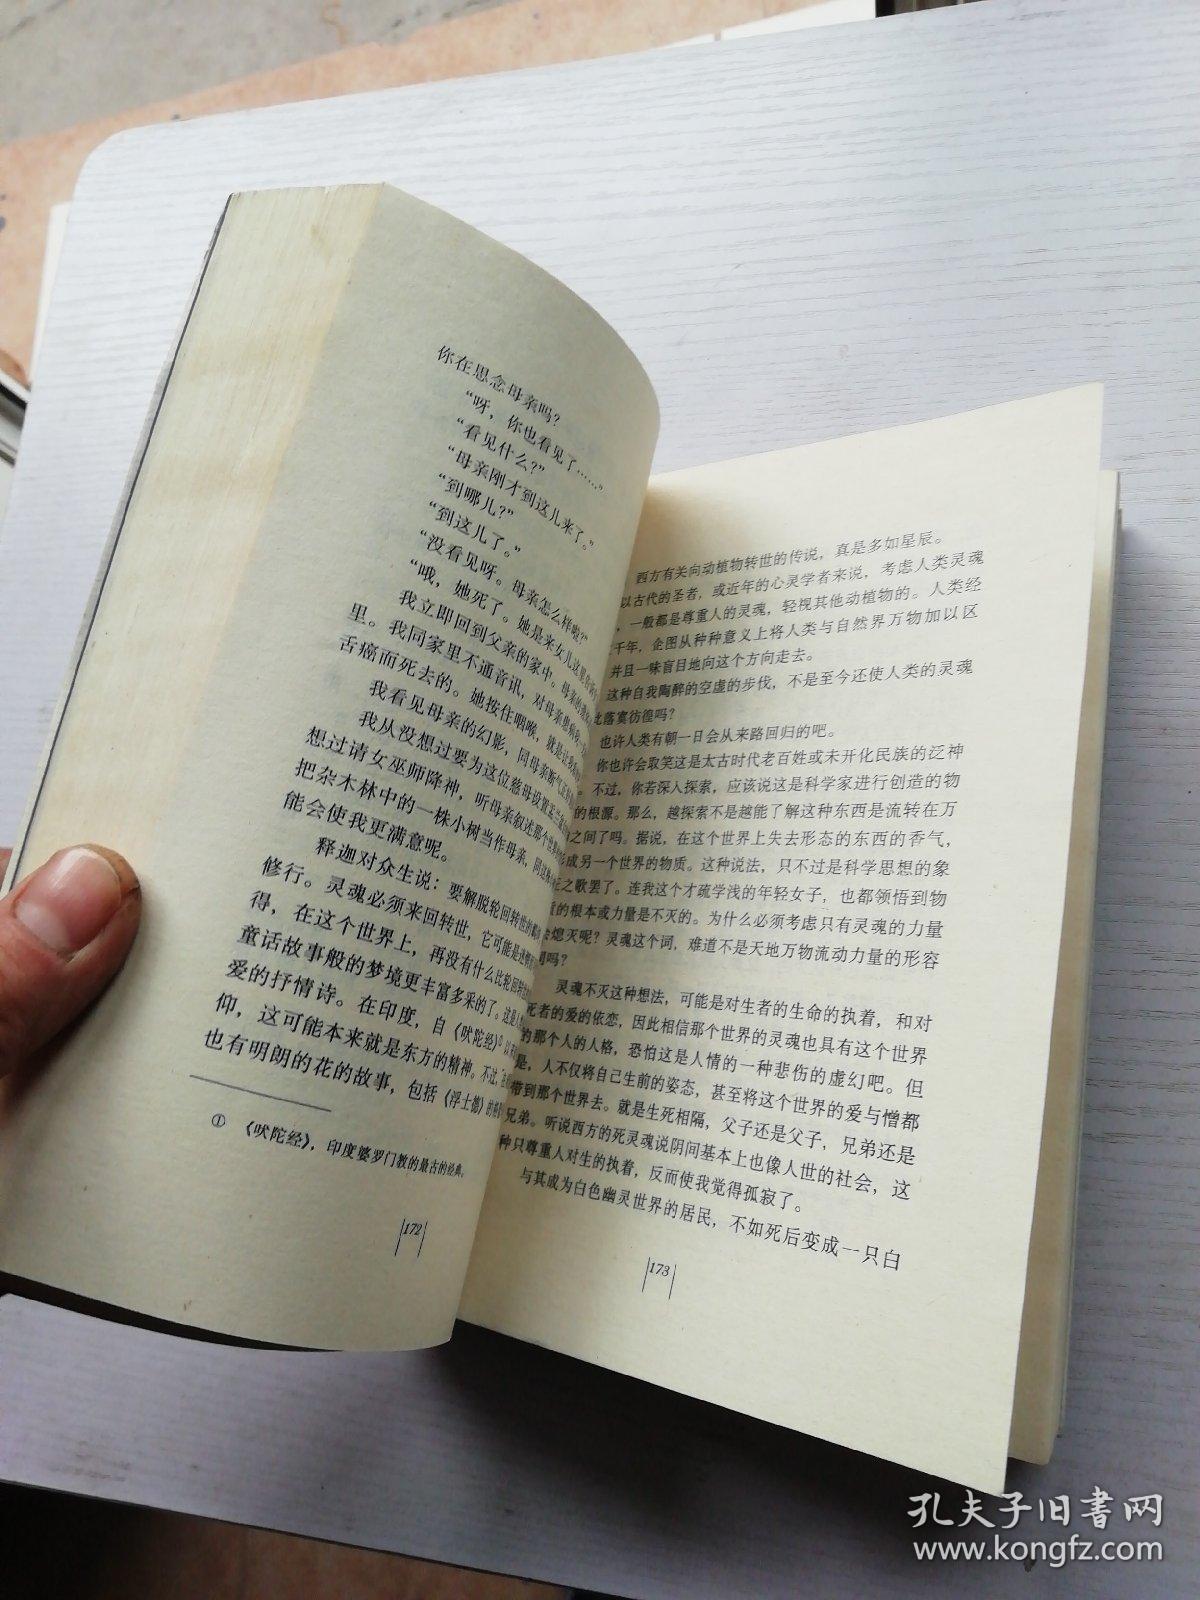 你在思念母亲吗？
“呀，你也看见了……”
“看见什么？”
“母亲刚才到这儿来了。”
“到哪儿？”
“到这儿了。”
“没看见呀。母亲怎么样啦？”
“哦，她死了。她是来女儿这里
我立即回到父亲的家中。母亲的
里。我同家里不通音讯，对母亲患病
舌癌而死去的。她按住咽喉，就是
我看见母亲的幻影，同母亲断气
我从没想过要为这位慈母设置
想过请女巫师降神，听母亲叙述那个世界
把杂木林中的一株小树当作母亲，同
能会使我更满意呢。
释迦对众生说：要解脱轮回转世的
修行。灵魂必须来回转世，它可能是迷
得，在这个世界上，再没有什么比轮回转
童话故事般的梦境更丰富多采的了。这是
爱的抒情诗。在印度，自《吠陀经》①以
仰，这可能本来就是东方的精神。不过，
也有明朗的花的故事，包括《浮士德》的
① 《吠陀经》，印度婆罗门教的最古的经典。
172
西方有关向动植物转世的传说，真是多如星辰。
以古代的圣者，或近年的心灵学者来说，考虑人类灵魂
，一般都是尊重人的灵魂，轻视其他动植物的。人类经
千年，企图从种种意义上将人类与自然界万物加以区
并且一味盲目地向这个方向走去。
这种自我陶醉的空虚的步伐，不是至今还使人类的灵魂
此落寞彷徨吗？
也许人类有朝一日会从来路回归的吧。
你也许会取笑这是太古时代老百姓或未开化民族的泛神
。不过，你若深入探索，应该说这是科学家进行创造的物
的根源。那么，越探索不是越能了解这种东西是流转在万
之间了吗。据说，在这个世界上失去形态的东西的香气，
成另一个世界的物质。这种说法，只不过是科学思想的象
之歌罢了。连我这个才疏学浅的年轻女子，也都领悟到物
的根本或力量是不灭的。为什么必须考虑只有灵魂的力量
会熄灭呢？灵魂这个词，难道不是天地万物流动力量的形容
词吗？
灵魂不灭这种想法，可能是对生者的生命的执着，和对
死者的爱的依恋，因此相信那个世界的灵魂也具有这个世界
的那个人的人格，恐怕这是人情的一种悲伤的虚幻吧。但
是，人不仅将自己生前的姿态，甚至将这个世界的爱与憎都
带到那个世界去。就是生死相隔，父子还是父子，兄弟还是
兄弟。听说西方的死灵魂说阴间基本上也像人世的社会，这
种只尊重人对生的执着，反而使我觉得孤寂了。
与其成为白色幽灵世界的居民，不如死后变成一只白
173
孔夫子旧书网
www.kongfz.com